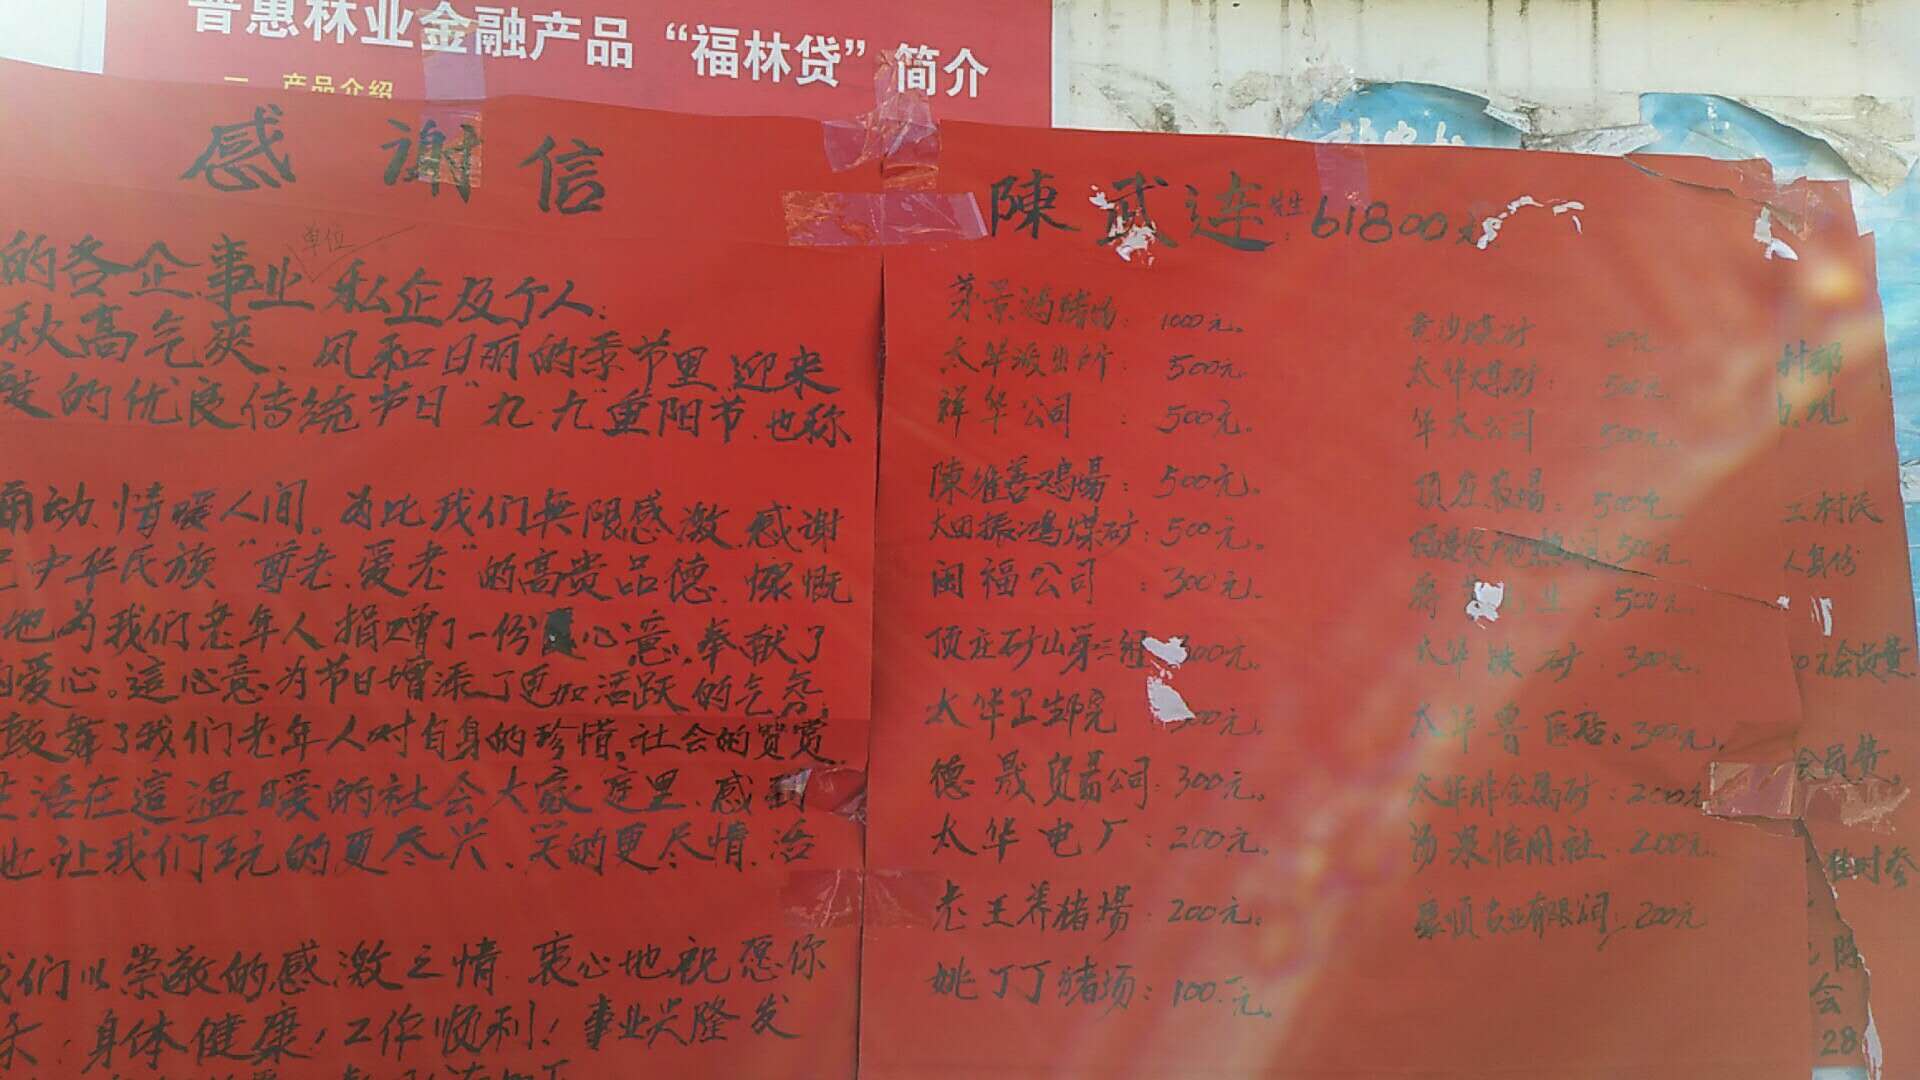 普惠林业金融产品“福林贷”简介
一、产品介绍
感谢信
单位
的各企.事业私企及个人：
秋高气爽、风和日丽的季节里.迎来
的优良传统节日“九.九”重阳节.也称
动.情暖人间。为此我们無限感激.感谢
中华民族“尊老.爱老”的高贵品德.慷慨
地为我们老年人捐赠了一份心意.奉献了
爱心。這心意为节日增添了更加活跃的气氛.
鼓舞了我们老年人对自身的珍惜.社会的赞赏.
生活在這温暖的社会大家庭里.感到
也让我们玩的更尽兴、笑的更尽情.活
我们以崇敬的感激之情.衷心地祝愿你
身体健康！工作顺利！事业兴隆发
陳武连先生：61800元
茅景鸿猪场：1000元。
太华派出所：500元.
祥华公司：500元。
陳维善鸡場：500元。
大田振鸿煤矿：500元。
闽福公司：300元.
顶庄矿山第三组 00元.
太华卫生院 00元.
德晟贸易公司：300元.
太华电厂：200元.
老王养猪場：200元.
姚丁丁猪场：100元.
太华煤矿：500元.
华大公司 500元.
顶庄农場：500元
500元.
生：500元.
太华铁矿 300元.
太华兽医站：300元.
太华非金属矿：200元
汤泉信用社 200元.
200元
村部
村民
人身份
会员
陈
会
28